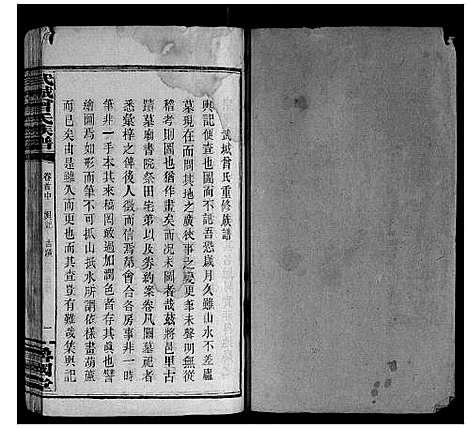 武城曾氏重修族譜
輿記便查也圖而不記吾恐歲月久雖山水不差廬
墓現在而問其地之廣狹事之變更茫未聲明無從
稽考則圖也猶作畫矣而況未圖者哉茲將邑里古
蹟墓廟書院祭田宅第以及券約案卷凡關墓祀者
悉彙梓之俾後人徵而信焉第會合各房事非一時
筆非一手本其來稿罔敢過加潤色者存其真也譬
繪圖爲如形而筆不可抓山抵水所謂依樣畫葫蘆
而已矣由是雖久而更也而其查豈有難哉集輿記
武城曾氏族譜
卷首中
輿記
古蹟
一